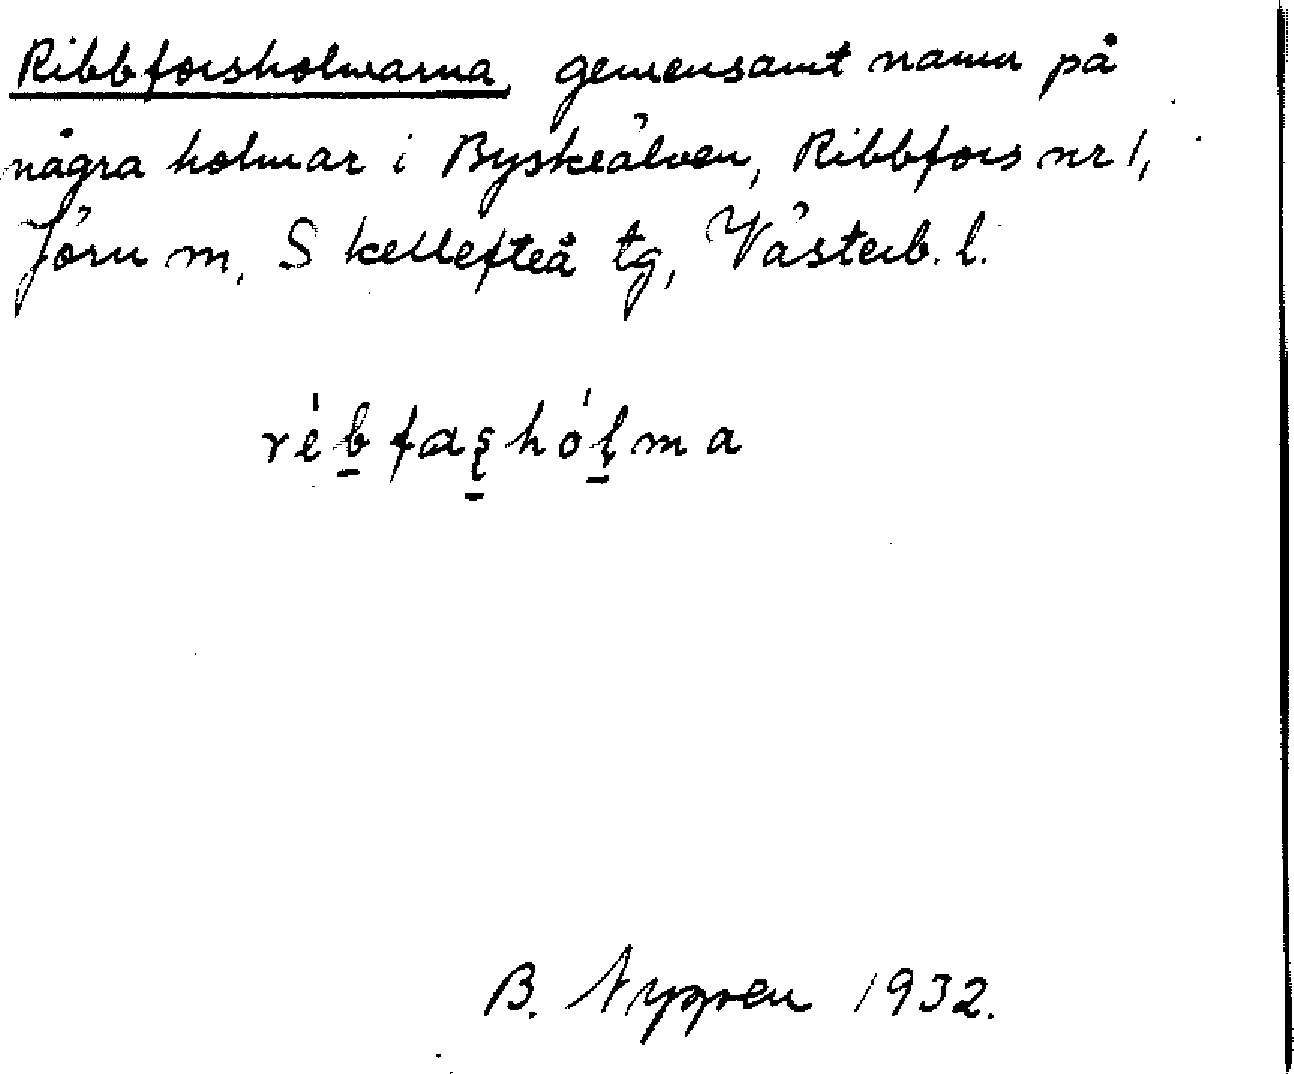 Ribbforsholmarna, gemensamt namn på
några holmar i Byskeälven, Ribbfors nr 1,
Jörn m, Skellefteå tg, Västerb. l.
rèb̲faʂ̲hól̲ma
B. Nygren 1932.